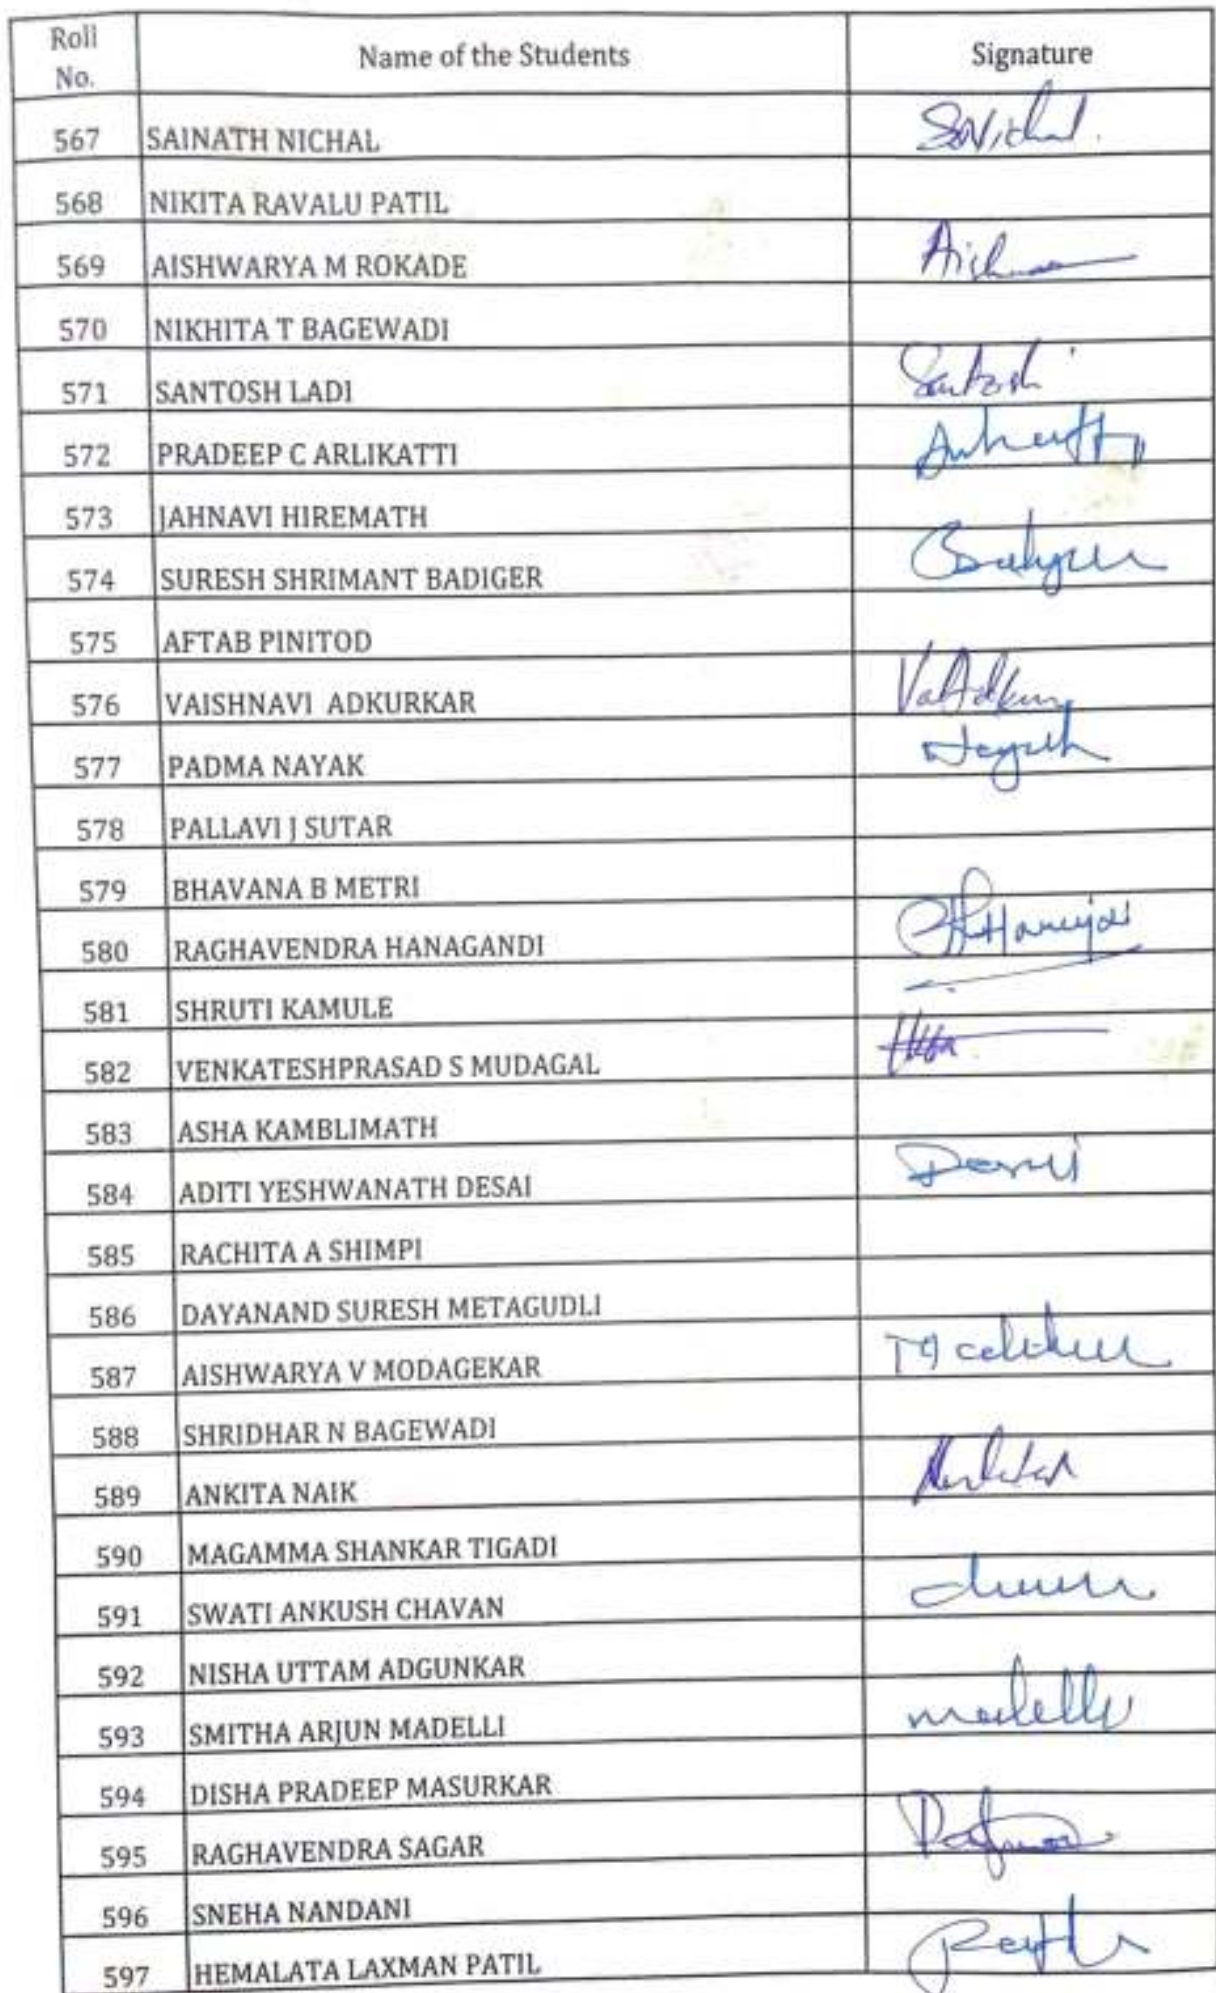 Roll No. Name of the Students Signature
567 SAINATH NICHAL SNichal.
568 NIKITA RAVALU PATIL
569 AISHWARYA M ROKADE
570 NIKHITA T BAGEWADI
571 SANTOSH LADI Santosh
572 PRADEEP C ARLIKATTI
573 JAHNAVI HIREMATH
574 SURESH SHRIMANT BADIGER
575 AFTAB PINITOD
576 VAISHNAVI ADKURKAR
577 PADMA NAYAK
578 PALLAVI J SUTAR
579 BHAVANA B METRI
580 RAGHAVENDRA HANAGANDI
581 SHRUTI KAMULE
582 VENKATESHPRASAD S MUDAGAL
583 ASHA KAMBLIMATH
584 ADITI YESHWANATH DESAI
585 RACHITA A SHIMPI
586 DAYANAND SURESH METAGUDLI
587 AISHWARYA V MODAGEKAR
588 SHRIDHAR N BAGEWADI
589 ANKITA NAIK
590 MAGAMMA SHANKAR TIGADI
591 SWATI ANKUSH CHAVAN
592 NISHA UTTAM ADGUNKAR
593 SMITHA ARJUN MADELLI madelli
594 DISHA PRADEEP MASURKAR
595 RAGHAVENDRA SAGAR
596 SNEHA NANDANI
597 HEMALATA LAXMAN PATIL